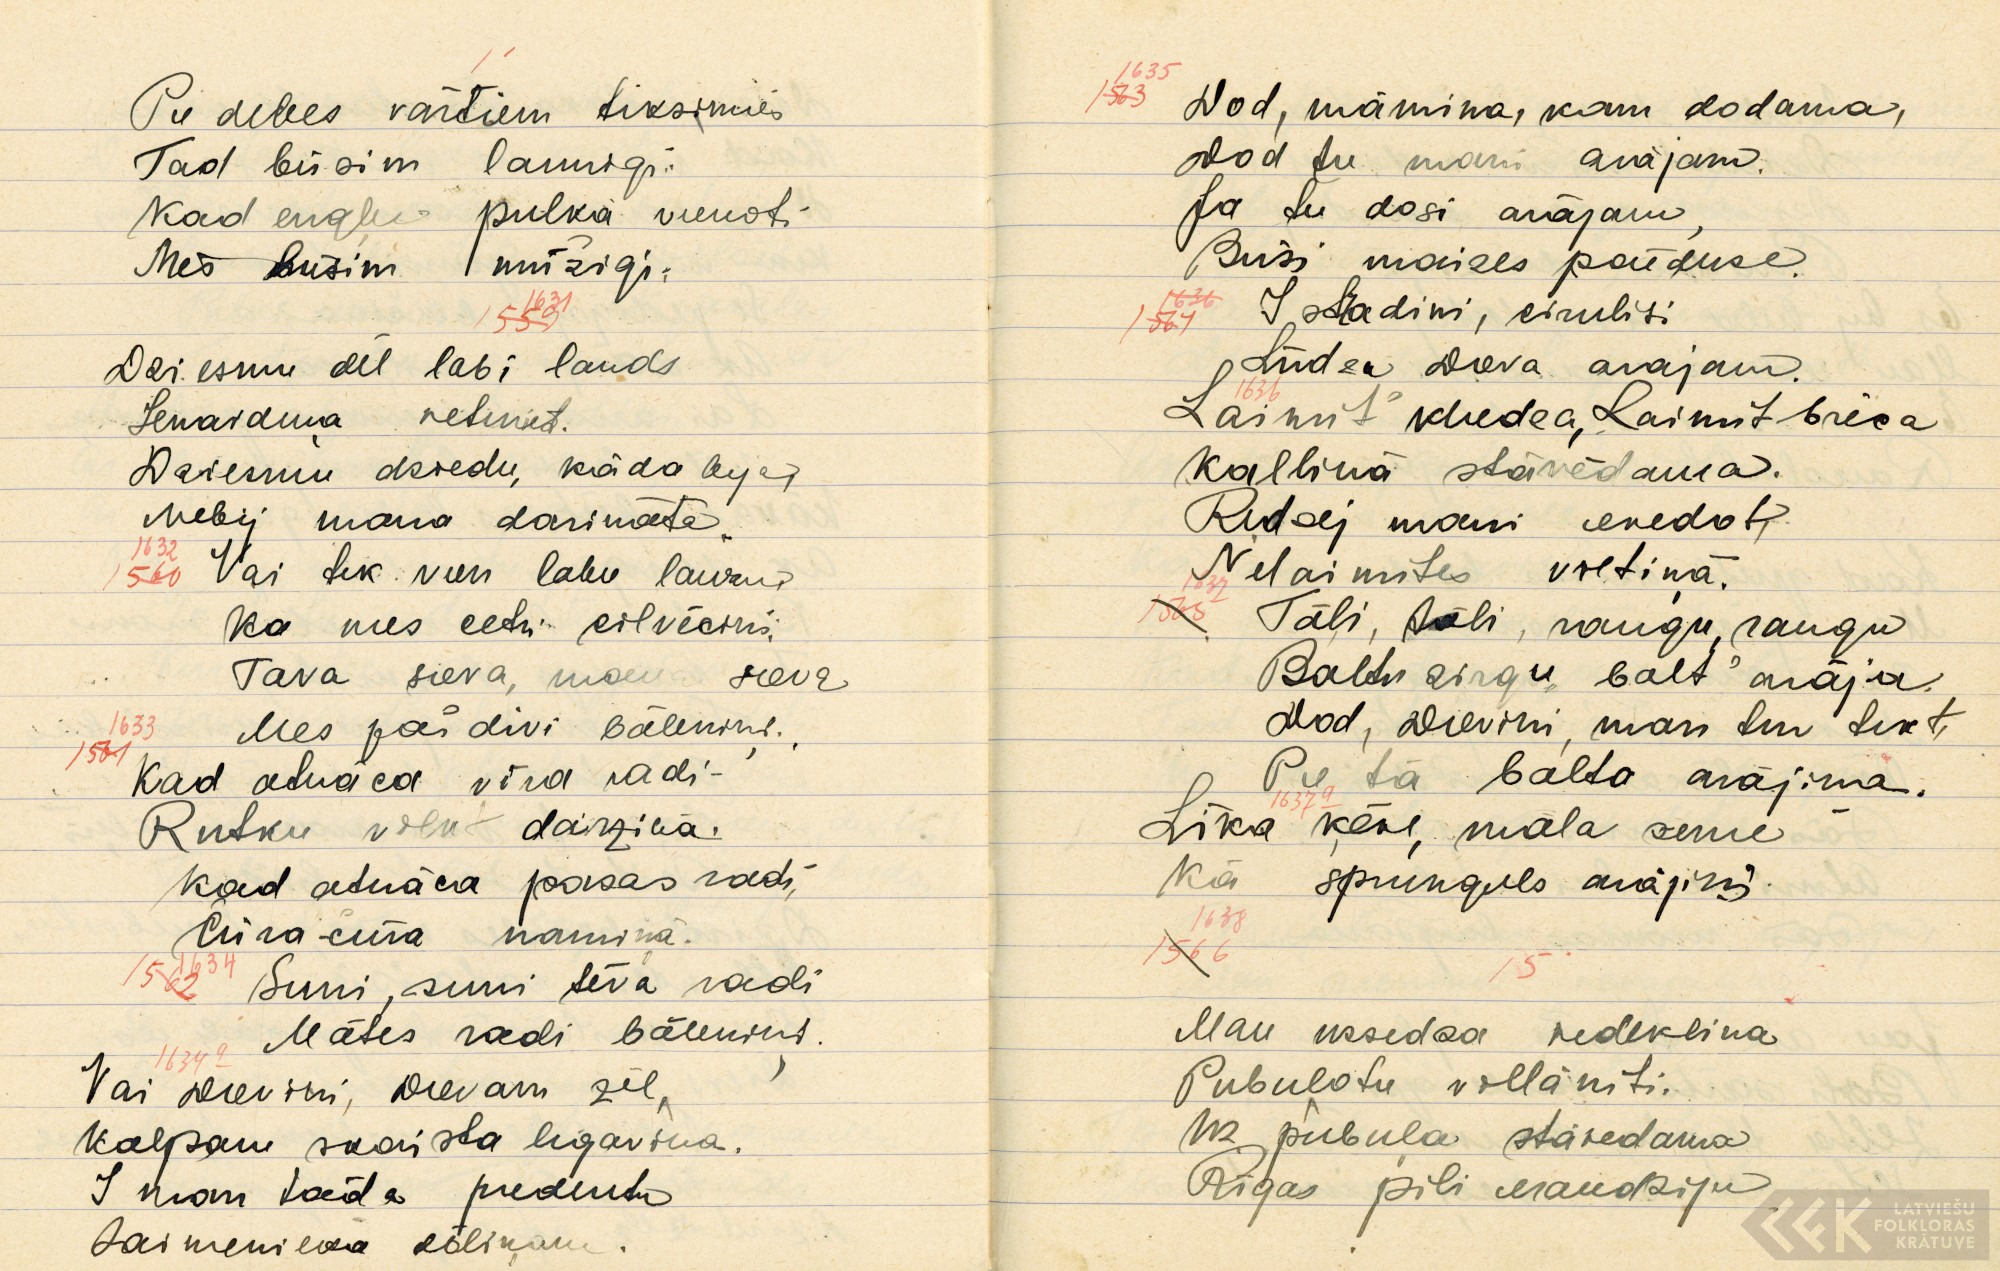 Pie debes vārtiem tiksimies
Tad būsim laimīgi.
Kad eņģeļu pulkā vienoti
Mēs būsim mūžīgi.
1631
1559
Dziesmu dēļ labi ļauds
Ienaidiņa
Dziesmu dziedu, kāda bija,
Nebij mana darināta.
1632
1560
Vai tik vien labu laužu
Ka mes cetri cilvēciņi.
Tava sieva, mana sieva
Mes paš' divi bāleniņi.
1633
1561
Kad atnāca vīra radi-
Rutku vilkt dārziņā.
Kad atnāca pašas radi,
Čūra-čūra namiņā.
1634
1562
Suņi, suņi tēva radi
Mātes radi bāleniņi.
1634a
Vai Dieviņi, Dievam žēl,
Kalpam skaista līgaviņa.
I man tāda piederētu
Saimenieka dēliņam.
1635
1563
Dod, māmiņa, kam dodama,
Dod tu mani arājam.
Ja tu dosi arājam,
Būsi maizes paēduse.
1636
1564
I stradiņi, cirulīši
Lūdza Dieva arājam.
1636
Laimīt' kliedza, Laimīt brēca
Kalliņā stāvēdama.
Rudzej mani
Nelaimītes vietiņā.
1637
1565
Tāļi, tāli, raugu, raugu
Baltu zirgu, balt' arāju.
Dod, Dieviņi, man tur tikt,
Pie tā balta arājiņa.
1637a
Līka ķēve, māla zeme
Kā spunguls arājiņš.
1638
1566
15
Man uzsedza
Pubulotu villāniti.
Uz pubuļa stāvedama
Rīgas pili
LATVIEŠU
FOLKLORAS
KRĀTUVE